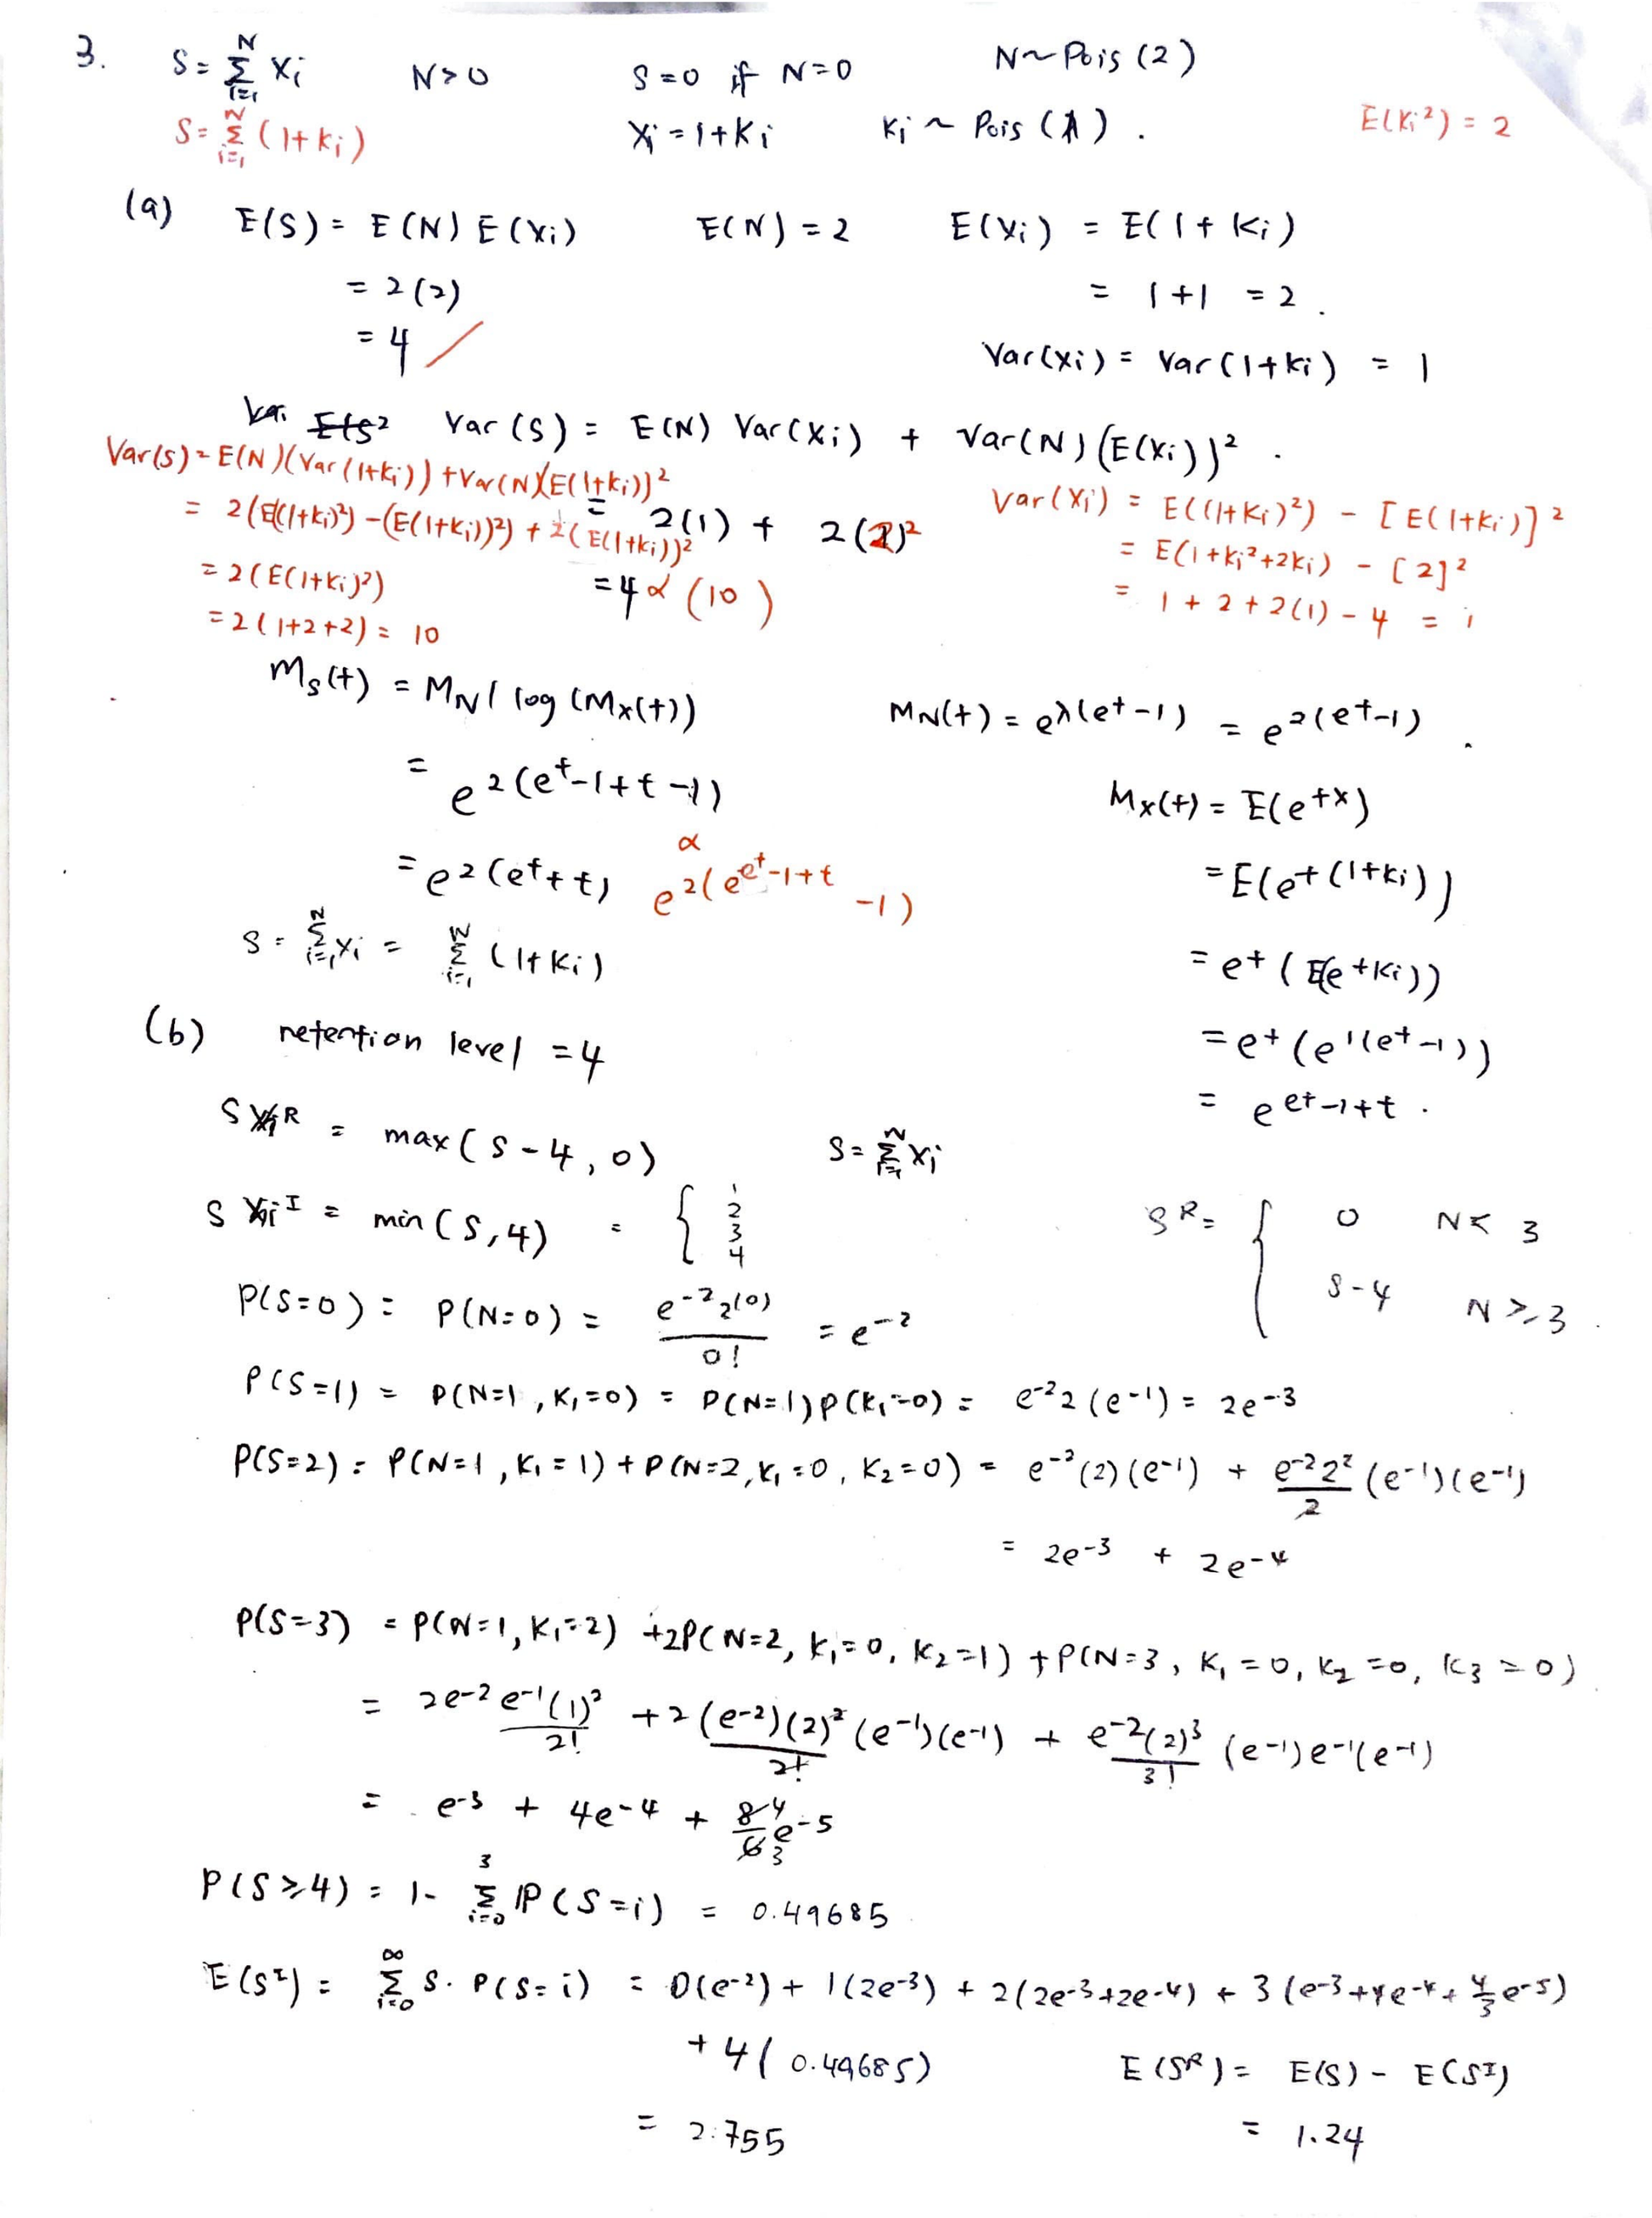 3. S = Σ_{i=1}^{N} Xi   N>0   S=0 if N=0   N~Pois(2)
S = Σ_{i=1}^{N} (1+ki)   Xi = 1+Ki   Ki ~ Pois(1).   E(Ki²) = 2
(a) E(S) = E(N) E(Xi)   E(N) = 2   E(Xi) = E(1+Ki)
= 2(2)   = 1+1 = 2.
= 4 /   Var(Xi) = Var(1+ki) = 1
Var(S) = E(N) Var(Xi) + Var(N)(E(Xi))².
Var(S) = E(N)(Var(1+ki)) + Var(N)(E(1+ki))²
= 2(E((1+ki)²) - (E(1+ki))²) + 2(E(1+ki))²   = 2(1) + 2(2)²   Var(Xi) = E((1+Ki)²) - [E(1+Ki)]²
= 2(E(1+ki)²)   = 4 α (10)   = E(1+ki²+2ki) - [2]²
= 2(1+2+2) = 10   = 1 + 2 + 2(1) - 4 = 1
Ms(t) = MN(log(Mx(t))   MN(t) = e^λ(e^t-1) = e^2(e^t-1).
= e^2(e^t-1+t-1)   Mx(t) = E(e^tx)
= e^2(e^t+t)   α e^2(e^{e^t-1+t}-1)   = E(e^t(1+ki))
S = Σ_{i=1}^{N} Xi = Σ_{i=1}^{N} (1+Ki)   = e^t(E(e^tKi))
(b) retention level = 4   = e^t(e^1(e^t-1))
= e^{e^t-1+t}.
S^R = max(S-4, 0)   S = Σ_{i=1}^{N} Xi
S^I = min(S, 4) = { 1 2 3 4   S^R = { 0   N< 3
S-4   N≥3.
P(S=0) = P(N=0) = e^-2 2^(0) / 0! = e^-2
P(S=1) = P(N=1, K₁=0) = P(N=1)P(K₁=0) = e^-2 2(e^-1) = 2e^-3
P(S=2) = P(N=1, K₁=1) + P(N=2, K₁=0, K₂=0) = e^-2(2)(e^-1) + e^-2 2²/2 (e^-1)(e^-1)
= 2e^-3 + 2e^-4
P(S=3) = P(N=1, K₁=2) + 2P(N=2, K₁=0, K₂=1) + P(N=3, K₁=0, K₂=0, K₃=0)
= 2e^-2 e^-1(1)²/2! + 2(e^-2)(2)²/2! (e^-1)(e^-1) + e^-2(2)³/3! (e^-1)e^-1(e^-1)
= e^-3 + 4e^-4 + 4/3 e^-5
P(S≥4) = 1- Σ_{i=0}^{3} P(S=i) = 0.49685
E(S^I) = Σ_{i=0}^{∞} S. P(S=i) = 0(e^-2) + 1(2e^-3) + 2(2e^-3+2e^-4) + 3(e^-3+4e^-4+4/3 e^-5)
+ 4(0.49685)   E(S^R) = E(S) - E(S^I)
= 2.755   = 1.24